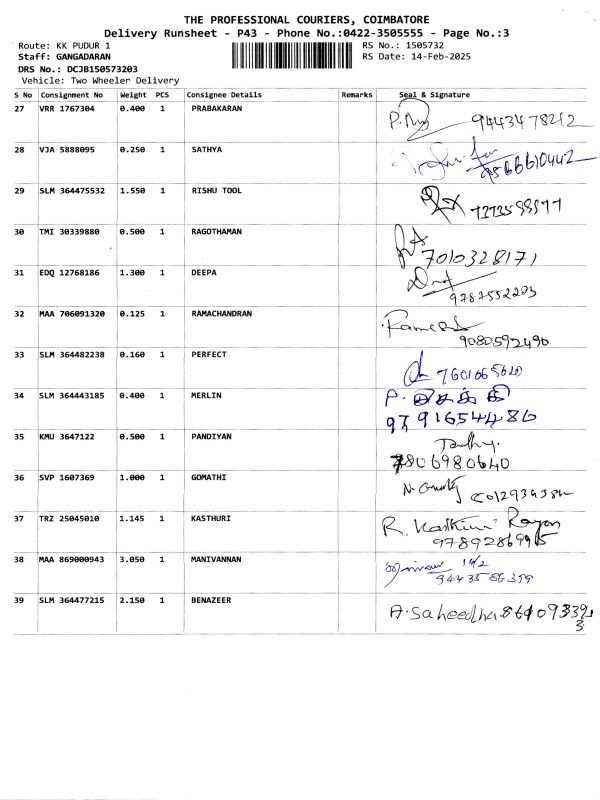 THE PROFESSIONAL COURIERS, COIMBATORE
Delivery Runsheet - P43 - Phone No.:0422-3505555 - Page No.:3
Route: KK PUDUR 1 RS No.: 1505732
Staff: GANGADARAN RS Date: 14-Feb-2025
DRS No.: DCJB150573203
Vehicle: Two Wheeler Delivery
S No Consignment No Weight PCS Consignee Details Remarks Seal & Signature
27 VRR 1767304 0.400 1 PRABAKARAN 9443478212
28 VJA 5888095 0.250 1 SATHYA 9566610442
29 SLM 364475532 1.550 1 RISHU TOOL
30 TMI 30339880 0.500 1 RAGOTHAMAN 7010328171
31 EDQ 12768186 1.300 1 DEEPA 9787552203
32 MAA 706091320 0.125 1 RAMACHANDRAN Ramesh
9080592490
33 SLM 364482238 0.160 1 PERFECT 7601065620
34 SLM 364443185 0.400 1 MERLIN P. சக்தி
9791654486
35 KMU 3647122 0.500 1 PANDIYAN
7806980640
36 SVP 1607369 1.000 1 GOMATHI
37 TRZ 25045010 1.145 1 KASTHURI R. Kasthuri Rajan
9789286995
38 MAA 869000943 3.050 1 MANIVANNAN 14/2
9443586359
39 SLM 364477215 2.150 1 BENAZEER A. Saheedha